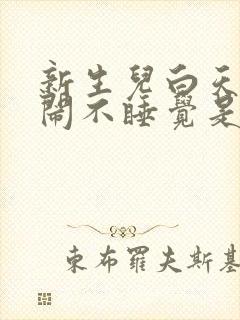 新生兒白天
鬧不睡覺是
東布羅夫斯基